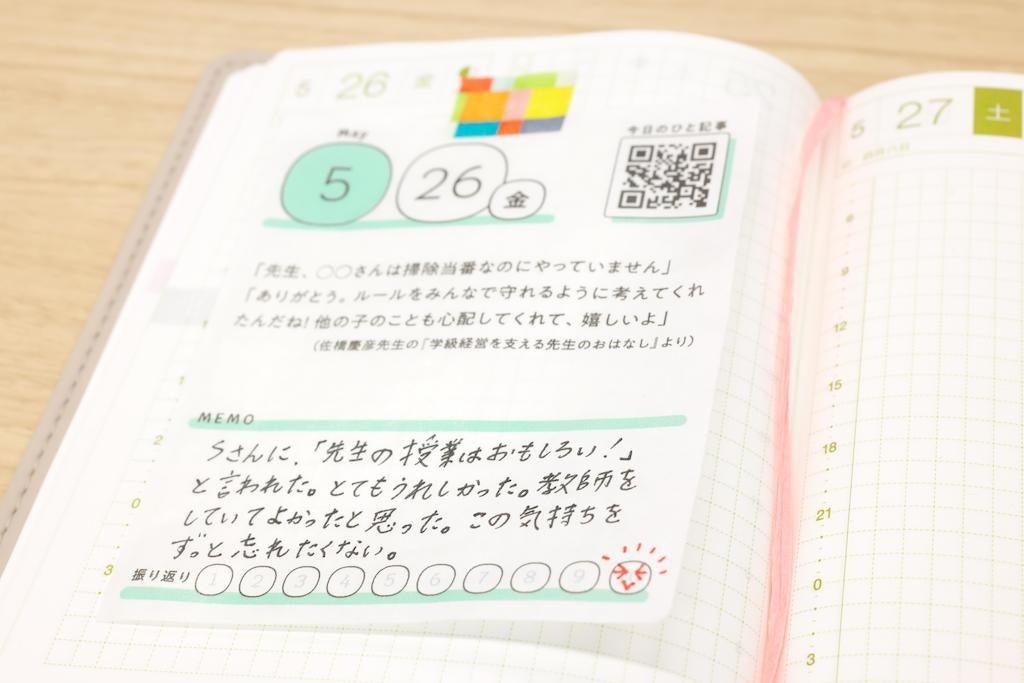 5 26 金
MAY
5 26 金
今日のひと記事
「先生、○○さんは掃除当番なのにやっていません」
「ありがとう。ルールをみんなで守れるように考えてくれ
たんだね!他の子のことも心配してくれて、嬉しいよ」
(佐橋慶彦先生の『学級経営を支える先生のおはなし』より)
MEMO
Sさんに、「先生の授業はおもしろい!」
と言われた。とてもうれしかった。教師を
していてよかったと思った。この気持ちを
ずっと忘れたくない。
振り返り 1 2 3 4 5 6 7 8 9
1
2
0
3
5 27 土
6
9
12
15
18
21
0
3